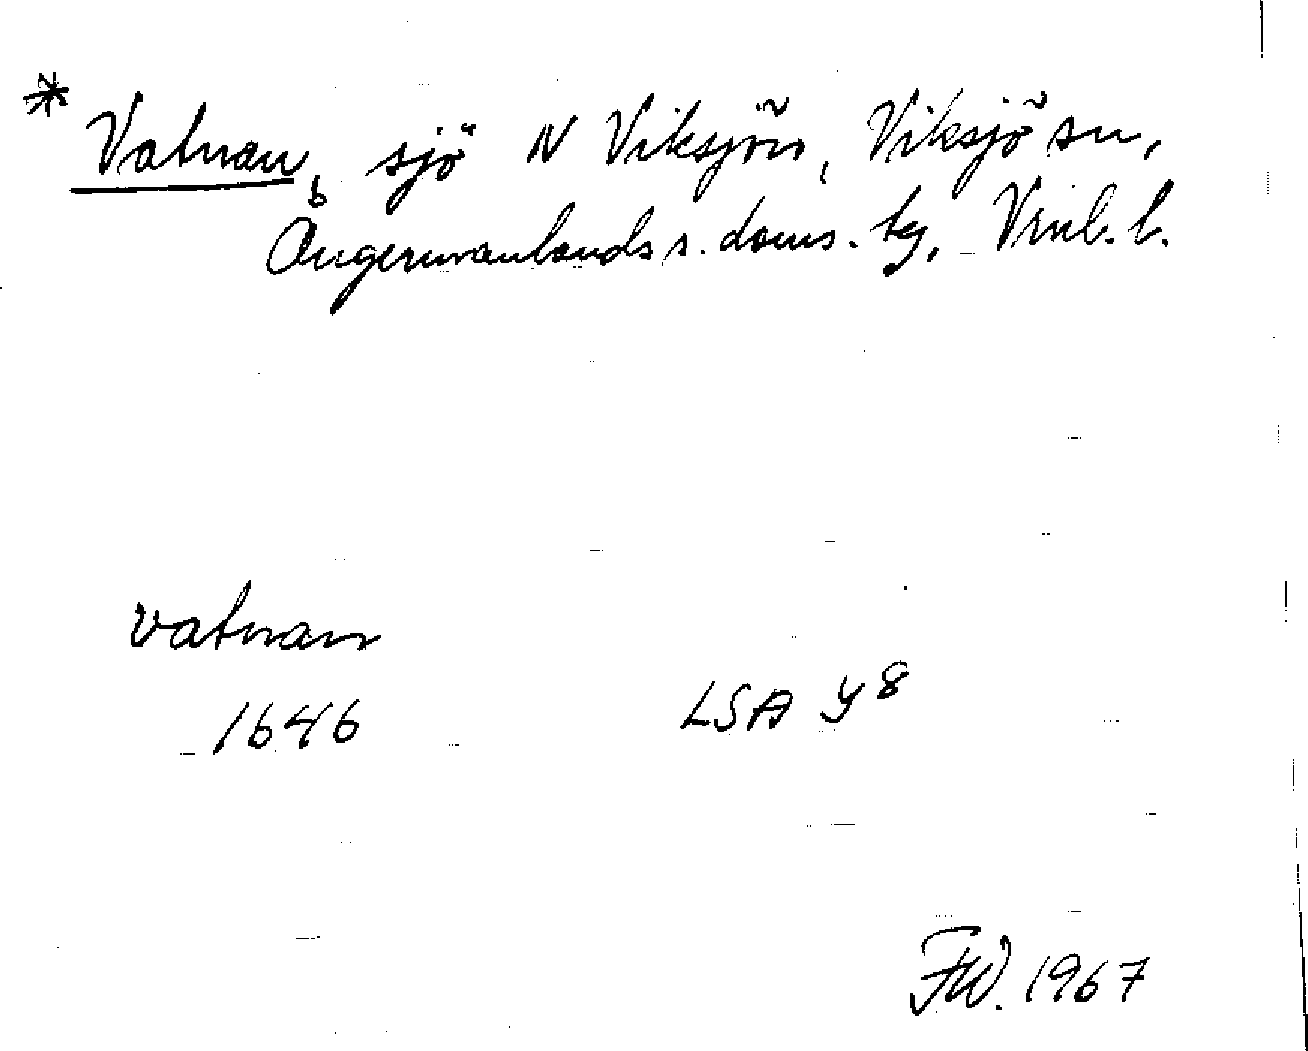 * Vatnan, sjö N Viksjön, Viksjö sn,
Ångermanlands s. doms. tg, Vnl. l.
vatnan
1646 LSA Y 8
FW. 1967